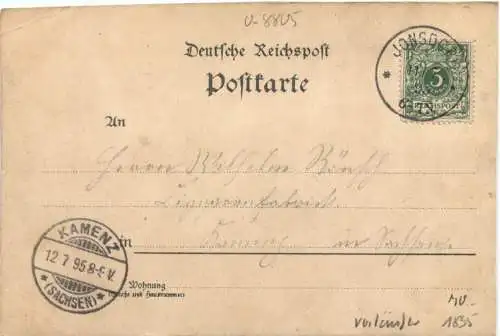 V-8805
JONSDORF
Deutsche Reichspost
5
REICHSPOST
Postkarte
An
Herrn Wilhelm
Cigarrenfabrik
in Kamenz in Sachsen
KAMENZ
12 7 95 8-9 V.
* (SACHSEN) *
Wohnung
(Straße und Hausnummer)
Vorläufer 1895